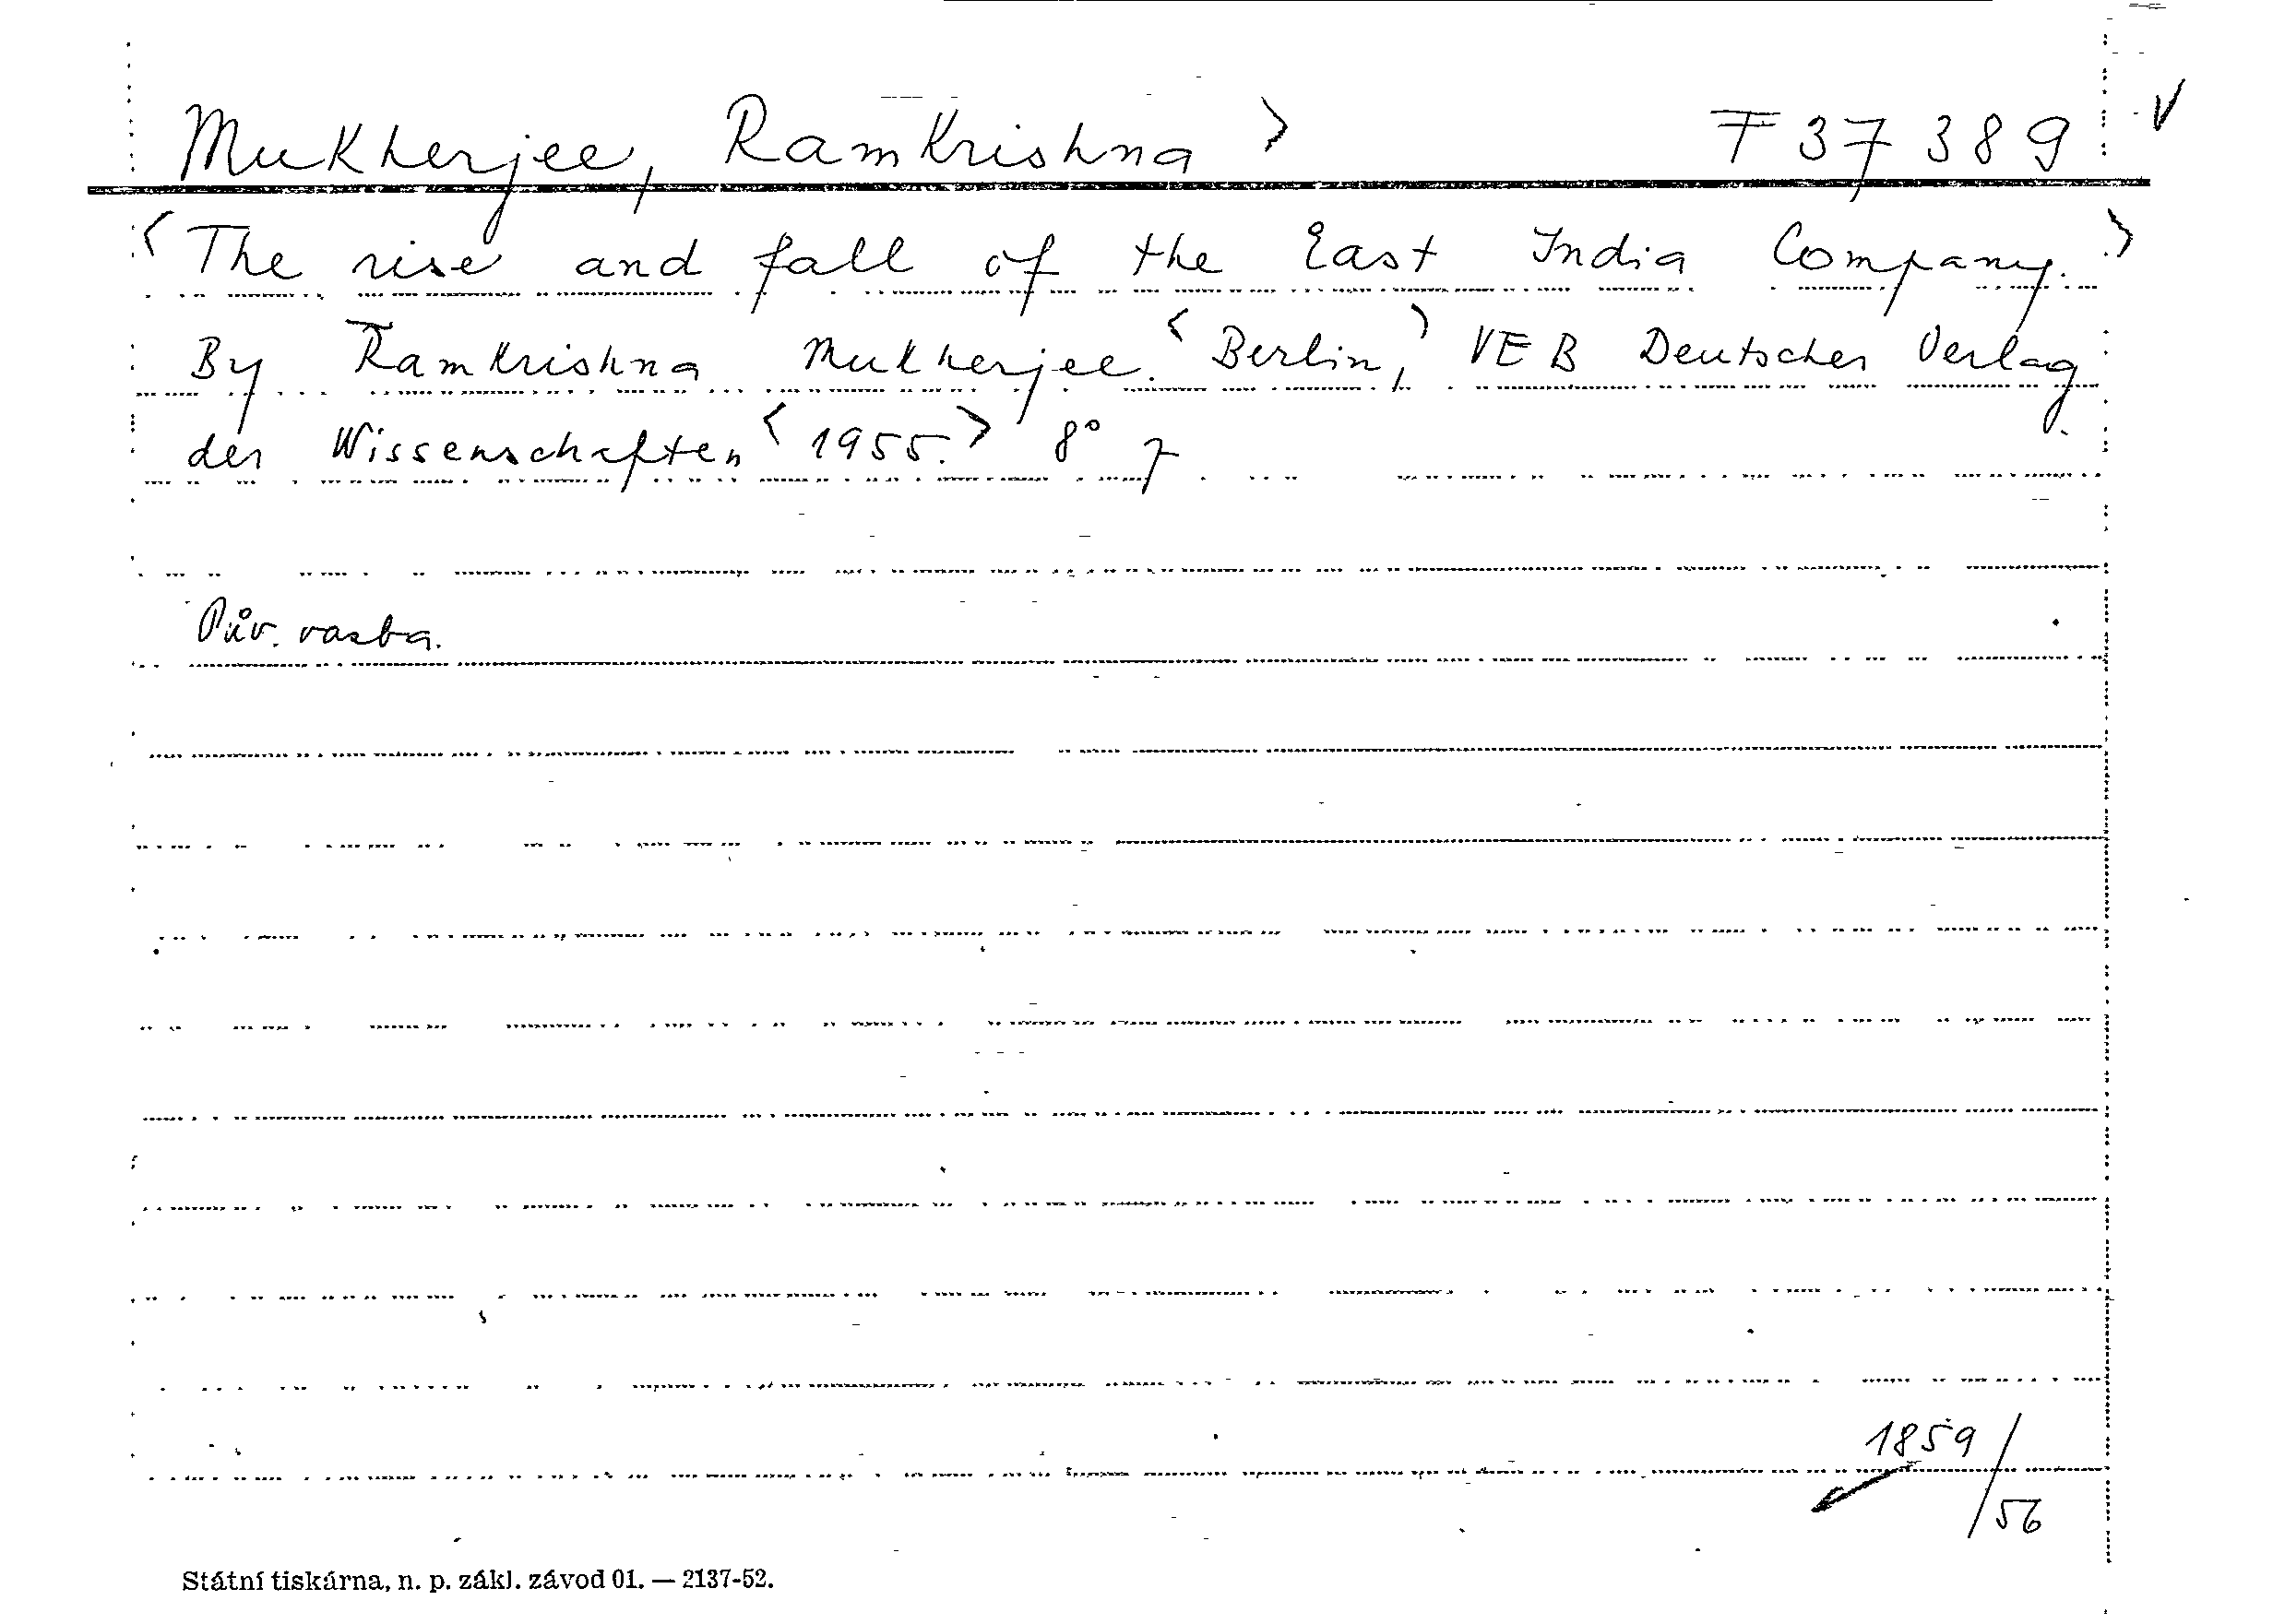 Mukherjee, Ramkrishna > F 37 389 V
<The rise and fall of the East India Company.>
By Ramkrishna Mukherjee. <Berlin,> VEB Deutscher Verlag
der Wissenschaften <1955.> 8°
Pův. vazba.
1859/56
Státní tiskárna, n. p. zákl. závod 01. — 2137-52.